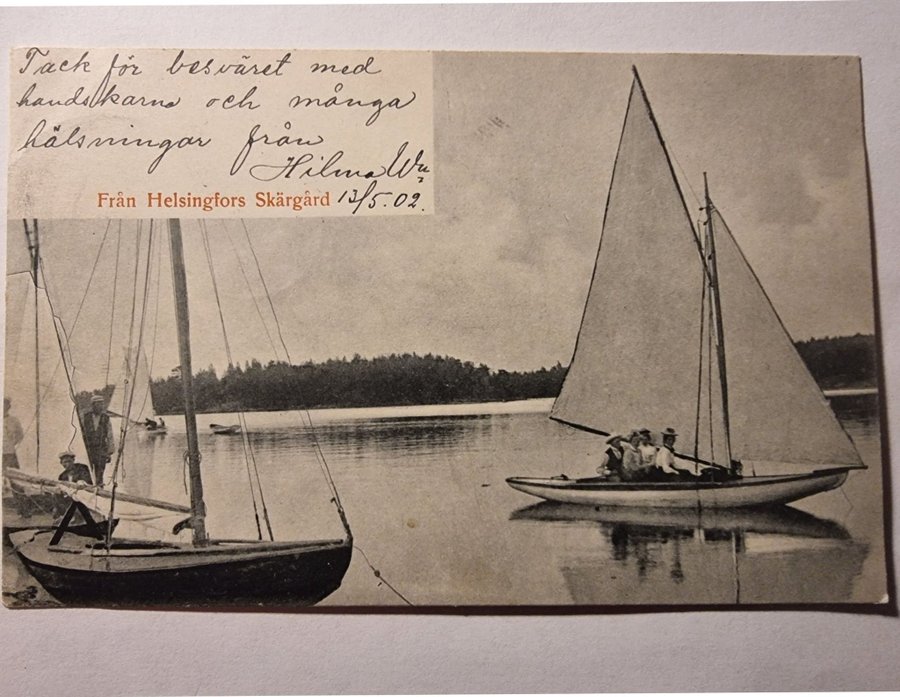 Tack för besväret med
handskarna och många
hälsningar från
Hilma
Från Helsingfors Skärgård 13/5. 02.